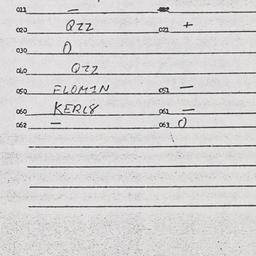 011 —
020 QZZ 021 +
030 0
040 QZZ
050 FLOM1N 051 —
060 KERL8 061 —
062 — 063 0